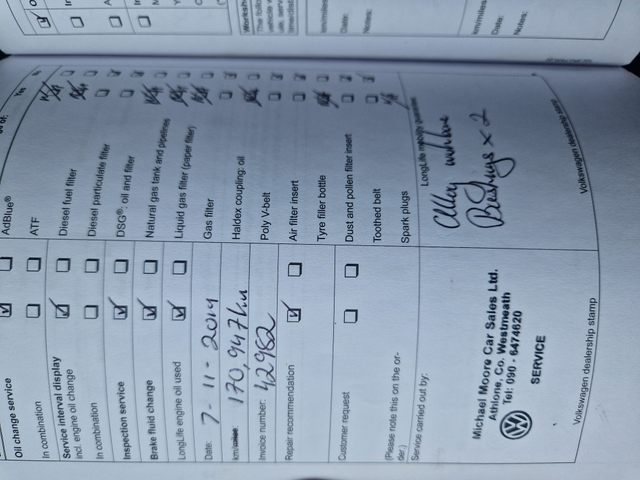 Oil change service
In combination
Service interval display
incl. engine oil change
In combination
Inspection service
Brake fluid change
LongLife engine oil used
Date: 7-11-2019
km/ 170,947km
Invoice number: 42962
Repair recommendation
Customer request
(Please note this on the or-
der.)
Service carried out by:
Michael Moore Car Sales Ltd.
Athlone, Co. Westmeath
Tel: 090 - 6474620
SERVICE
Volkswagen dealership stamp
Yes
AdBlue®
ATF
Diesel fuel filter
Diesel particulate filter
DSG®: oil and filter
Natural gas tank and pipelines
Liquid gas filter (paper filter)
Gas filter
Haldex coupling: oil
Poly V-belt
Air filter insert
Tyre filler bottle
Dust and pollen filter insert
Toothed belt
Spark plugs
LongLife mobility guarantee
Bushings x 2
Volkswagen dealership
km/miles:
Date:
Notes:
km/miles:
Date:
Notes: